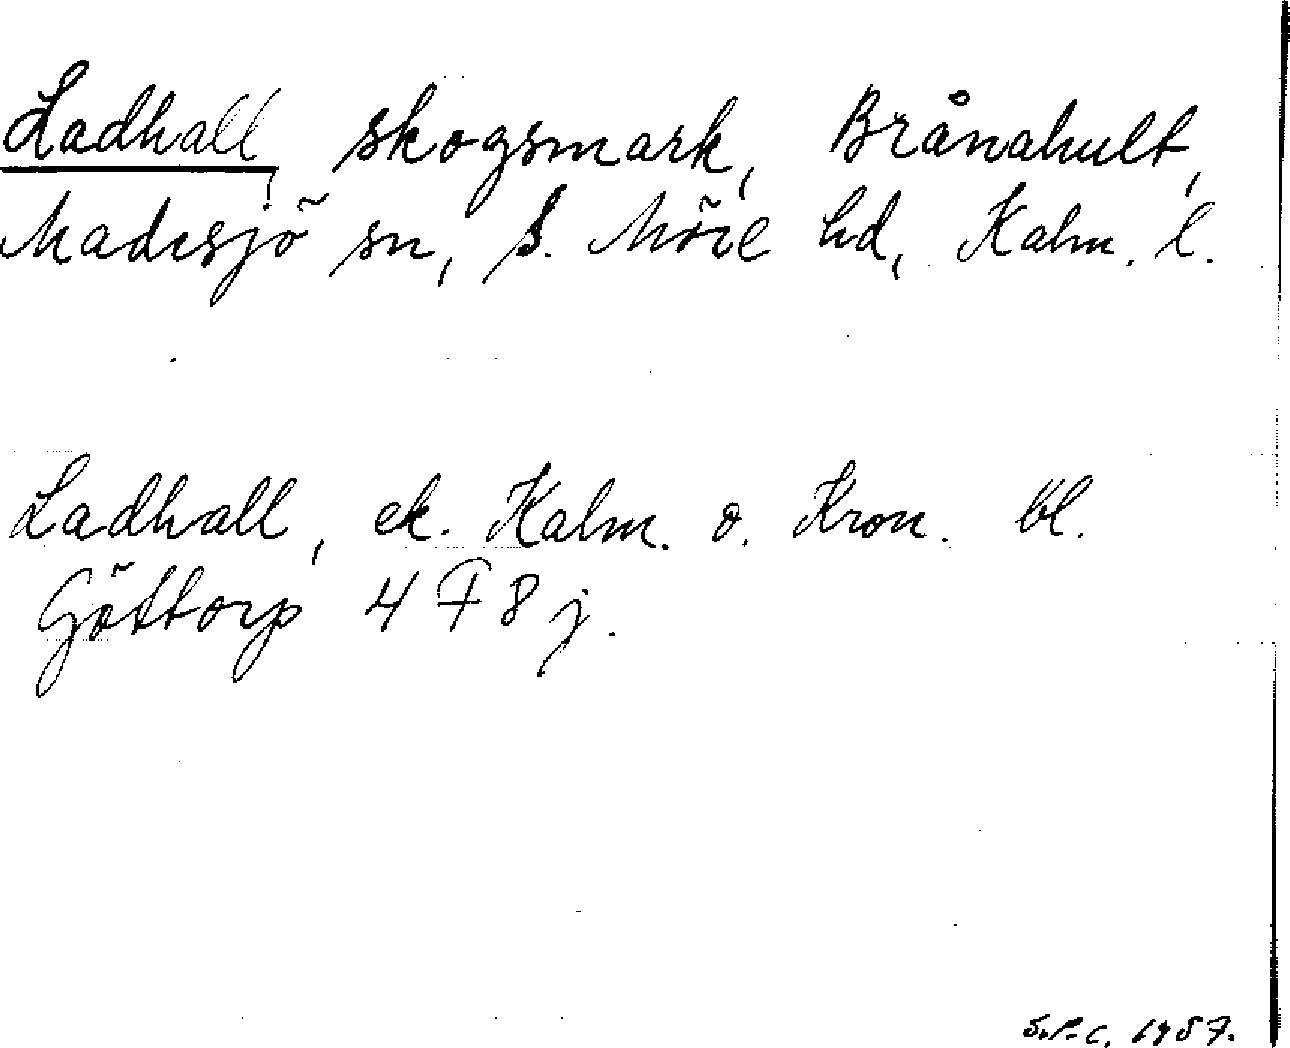 Ladhall, skogsmark, Brånahult,
Madesjö sn, S. Möre hd, Kalm. l.
Ladhall, ek. Kalm. o. Kron. bl.
Göttorp 4 F 8 j.
S.P.C. 1957.